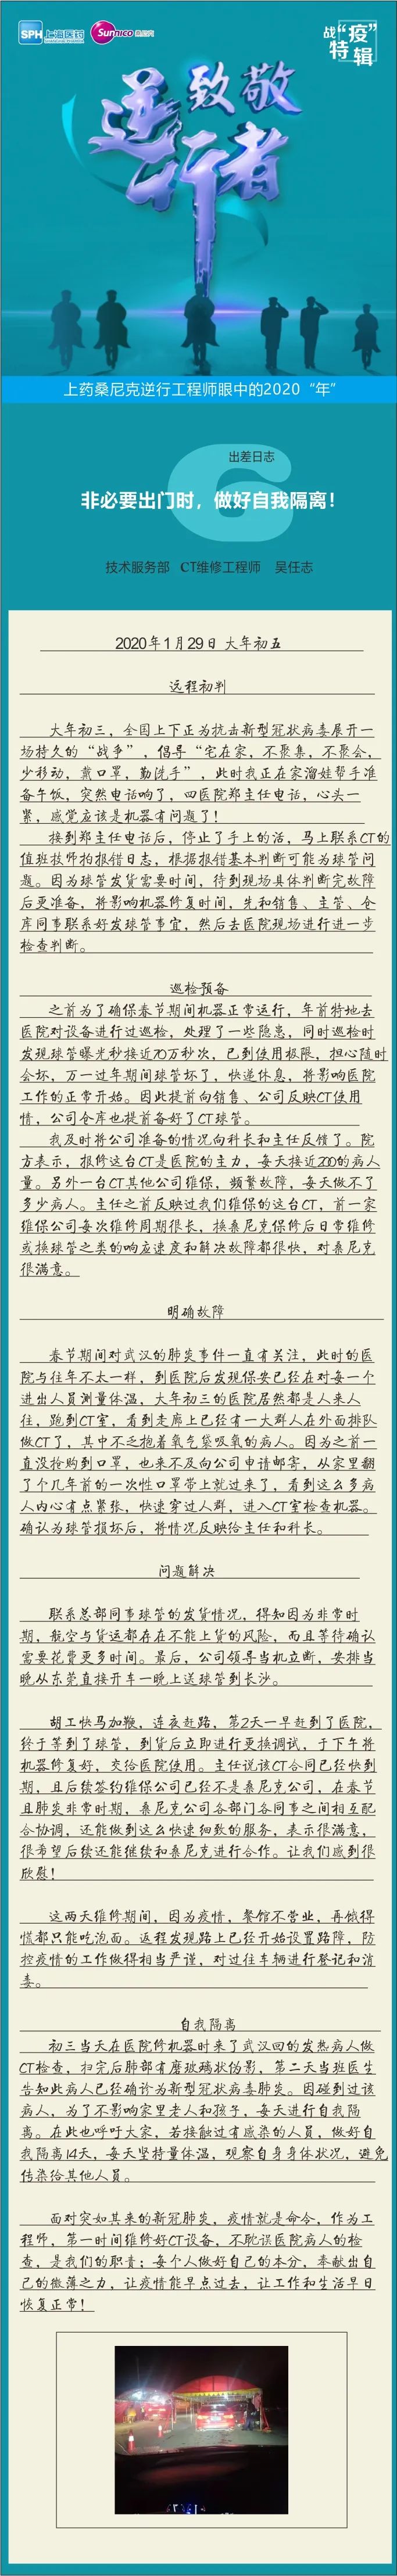 SPH 上海医药 Sunnico 桑尼克
战“疫”
特辑
致敬
逆行者
上药桑尼克逆行工程师眼中的2020“年”
6
出差日志
非必要出门时，做好自我隔离！
技术服务部 CT维修工程师 吴任志
2020年1月29日 大年初五
远程初判
大年初三，全国上下正为抗击新型冠状病毒展开一
场持久的“战争”，倡导“宅在家，不聚集，不聚会，
少移动，戴口罩，勤洗手”，此时我正在家溜娃帮手准
备午饭，突然电话响了，四医院郑主任电话，心头一
紧，感觉应该是机器有问题了！
接到郑主任电话后，停止了手上的活，马上联系CT的
值班技师拍报错日志，根据报错基本判断可能为球管问
题。因为球管发货需要时间，待到现场具体判断完故障
后更准备，将影响机器修复时间，先和销售、主管、仓
库同事联系好发球管事宜，然后去医院现场进行进一步
检查判断。
巡检预备
之前为了确保春节期间机器正常运行，年前特地去
医院对设备进行过巡检，处理了一些隐患，同时巡检时
发现球管曝光秒接近70万秒次，已到使用极限，担心随时
会坏，万一过年期间球管坏了，快递休息，将影响医院
工作的正常开始。因此提前向销售、公司反映CT使用
情，公司仓库也提前备好了CT球管。
我及时将公司准备的情况向科长和主任反馈了。院
方表示，报修这台CT是医院的主力，每天接近200的病人
量。另外一台CT其他公司维保，频繁故障，每天做不了
多少病人。主任之前反映过我们维保的这台CT，前一家
维保公司每次维修周期很长，换桑尼克保修后日常维修
或换球管之类的响应速度和解决故障都很快，对桑尼克
很满意。
明确故障
春节期间对武汉的肺炎事件一直有关注，此时的医
院与往年不太一样，到医院后发现保安已经在对每一个
进出人员测量体温，大年初三的医院居然都是人来人
往，跑到CT室，看到走廊上已经有一大群人在外面排队
做CT了，其中不乏抱着氧气袋吸氧的病人。因为之前一
直没抢购到口罩，也来不及向公司申请邮寄，从家里翻
了个几年前的一次性口罩带上就过来了，看到这么多病
人内心有点紧张，快速穿过人群，进入CT室检查机器。
确认为球管损坏后，将情况反映给主任和科长。
问题解决
联系总部同事球管的发货情况，得知因为非常时
期，航空与货运都存在不能上货的风险，而且等待确认
需要花费更多时间。最后，公司领导当机立断，安排当
晚从东莞直接开车一晚上送球管到长沙。
胡工快马加鞭，连夜赶路，第2天一早赶到了医院，
终于等到了球管，到货后立即进行更换调试，于下午将
机器修复好，交给医院使用。主任说该CT合同已经快到
期，且后续签约维保公司已经不是桑尼克公司，在春节
且肺炎非常时期，桑尼克公司各部门各同事之间相互配
合协调，还能做到这么快速细致的服务，表示很满意，
很希望后续还能继续和桑尼克进行合作。让我们感到很
欣慰！
这两天维修期间，因为疫情，餐馆不营业，再饿得
慌都只能吃泡面。返程发现路上已经开始设置路障，防
控疫情的工作做得相当严谨，对过往车辆进行登记和消
毒。
自我隔离
初三当天在医院修机器时来了武汉回的发热病人做
CT检查，扫完后肺部有磨玻璃状伪影，第二天当班医生
告知此病人已经确诊为新型冠状病毒肺炎。因碰到过该
病人，为了不影响家里老人和孩子，每天进行自我隔
离。在此也呼吁大家，若接触过有感染的人员，做好自
我隔离14天，每天坚持量体温，观察自身身体状况，避免
传染给其他人员。
面对突如其来的新冠肺炎，疫情就是命令，作为工
程师，第一时间维修好CT设备，不耽误医院病人的检
查，是我们的职责；每个人做好自己的本分，奉献出自
己的微薄之力，让疫情能早点过去，让工作和生活早日
恢复正常！